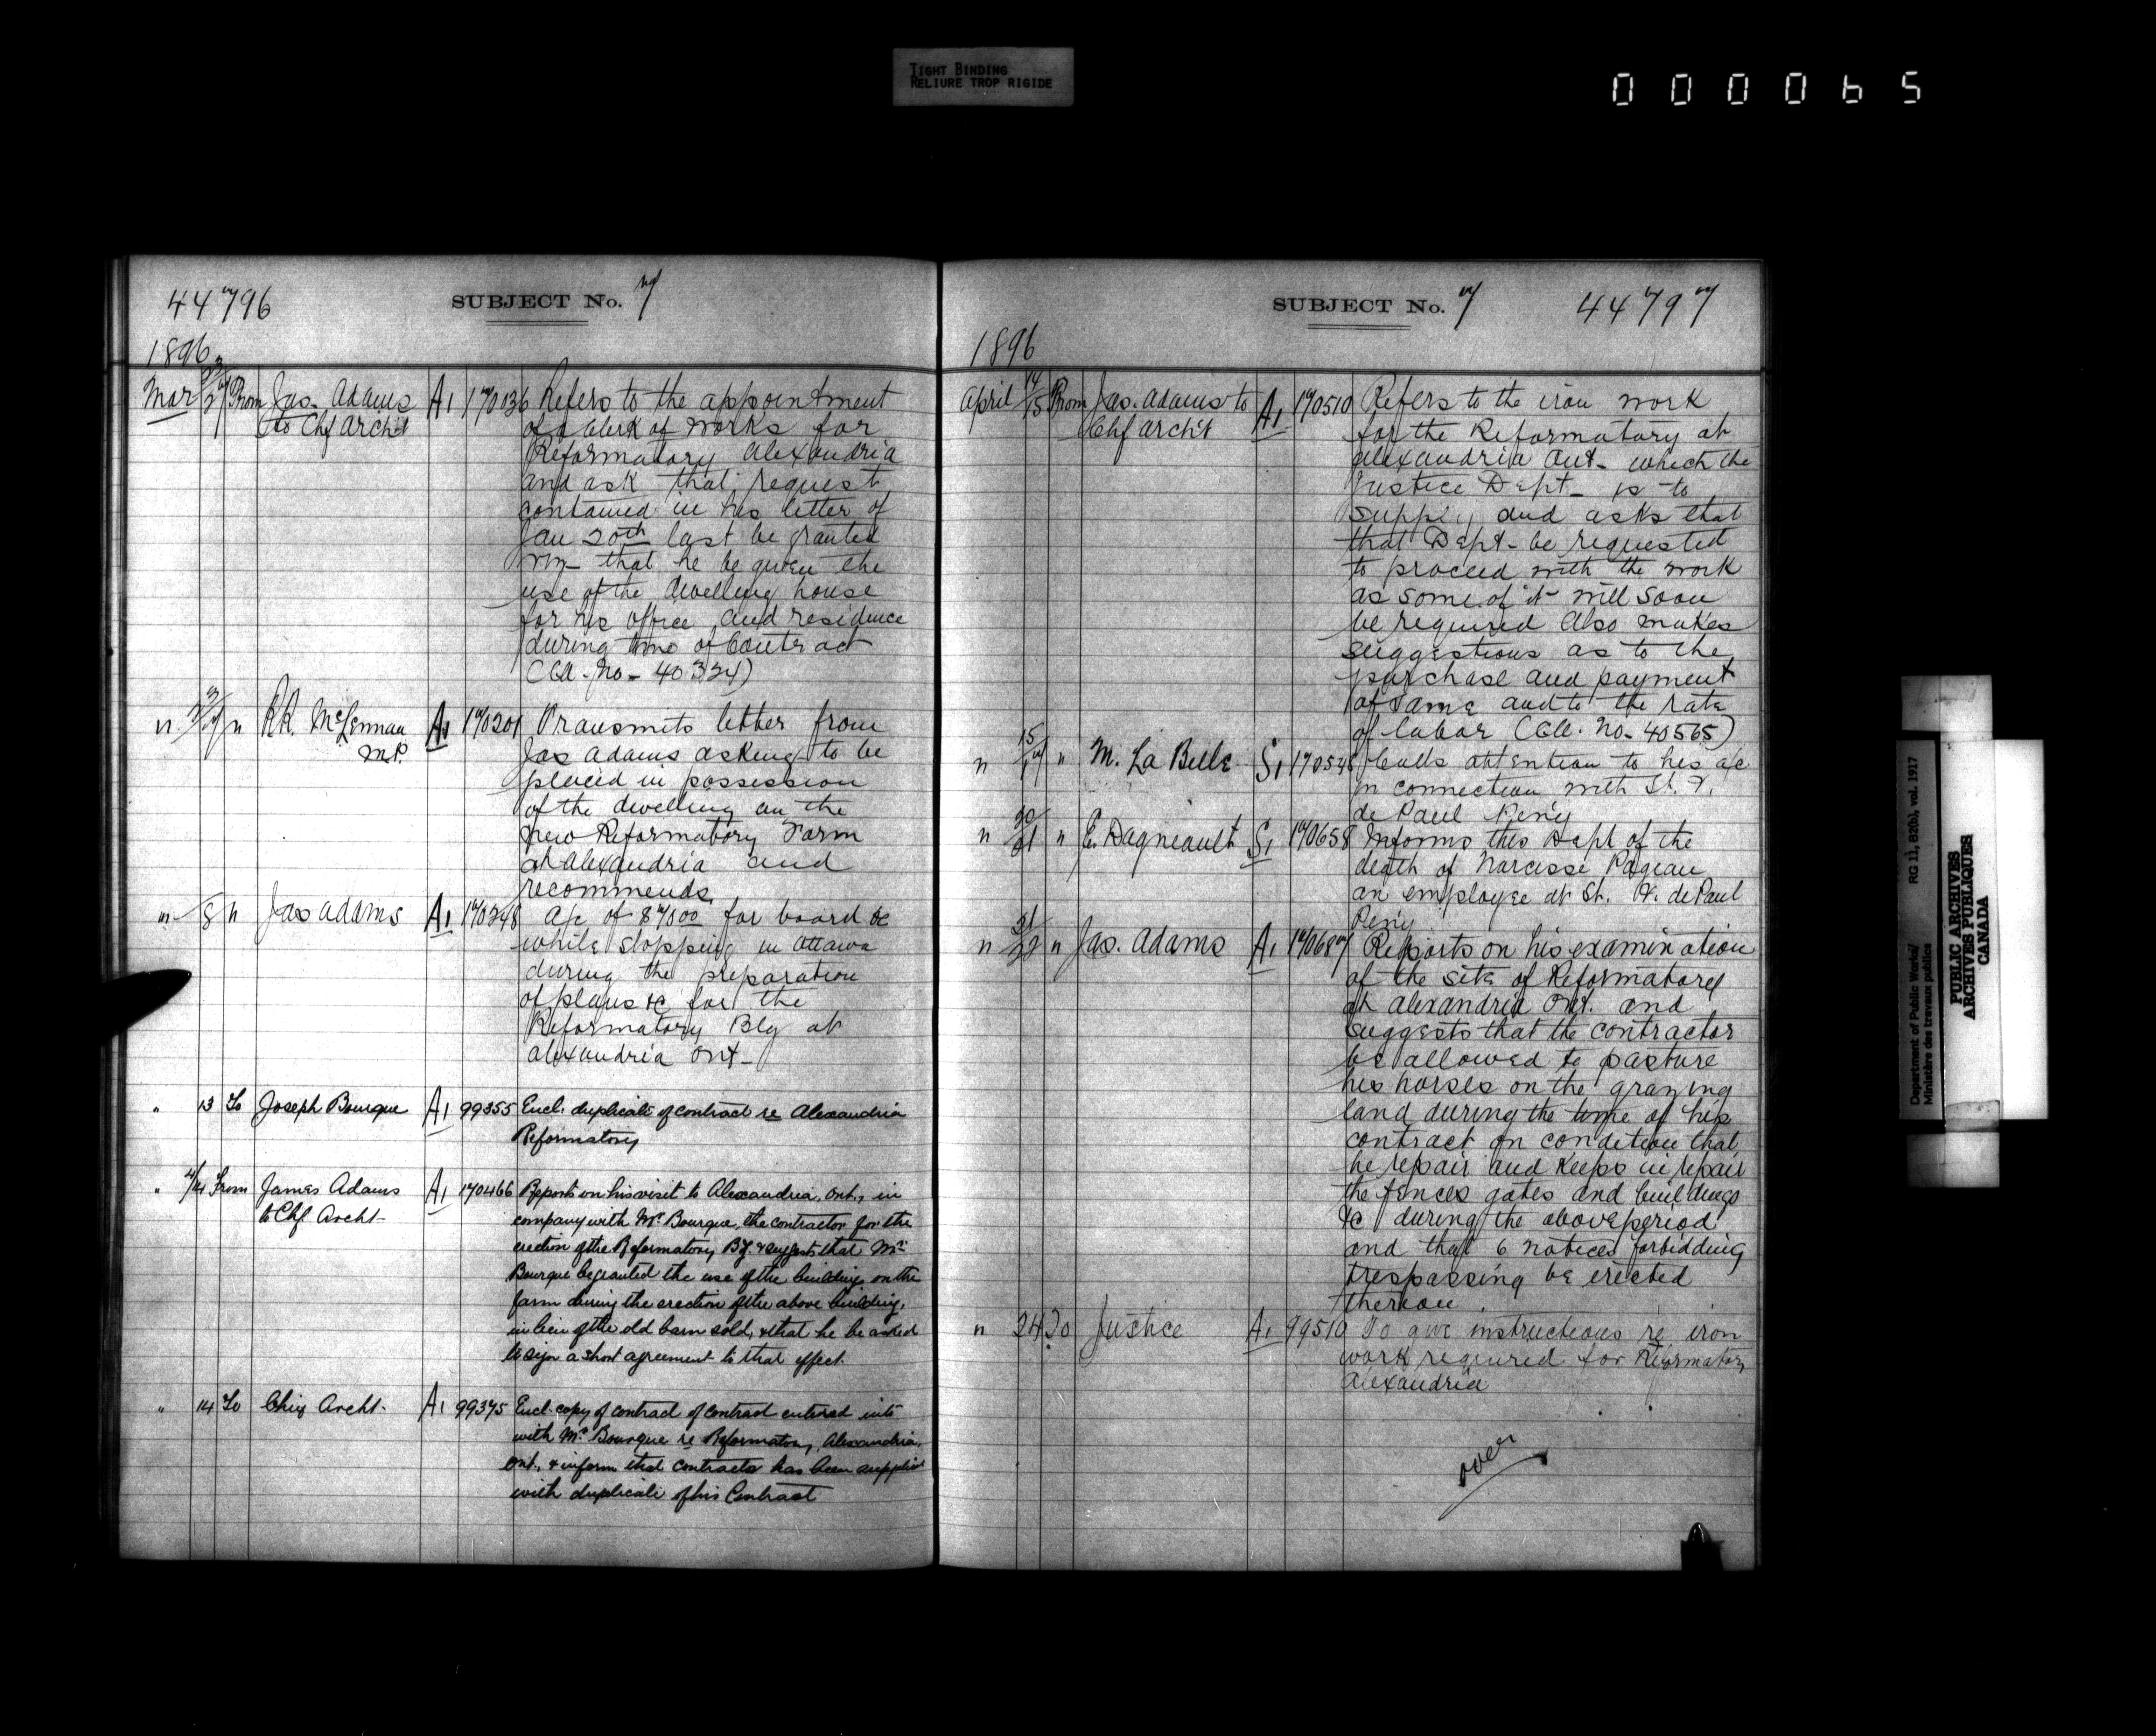 TIGHT BINDING
RELIURE TROP RIGIDE
000065
44796
SUBJECT No. 7
1896
Mar From Jas. Adams A1 170136 Refers to the appointment
to Chf Archt of a Clerk of Works for
Reformatory Alexandria
and ask that request
contained in his letter of
Jan 20th last be granted
viz- that he be given the
use of the dwelling house
for his office and residence
during time of Contract
(Gll. No- 40324)
" " R.R. McLennan A1 170201 Transmits letter from
M.P. Jas Adams asking to be
placed in possession
of the dwelling on the
new Reformatory Farm
at Alexandria and
recommends
" 8 " Jas Adams A1 170248 A/c of for board &c
while stopping in Ottawa
during the preparation
of plans &c for the
Reformatory Blg at
Alexandria Ont-
" 13 To Joseph Bourque A1 99355 Encl. duplicate of contract re Alexandria
Reformatory
" 4/14 From James Adams A1 170466 Reports on his visit to Alexandria, Ont., in
to Chf Archt- company with Mr Bourque, the contractor for the
erection of the Reformatory Bg. & suggests that Mr
Bourque be granted the use of the buildings on the
farm during the erection of the above building,
in lieu of the old barn sold, & that he be asked
to sign a short agreement to that effect.
" 14 To Chief Archt. A1 99375 Encl. copy of contract of contract entered into
with Mr Bourque re Reformatory, Alexandria,
Ont., & inform that contractor has been supplied
with duplicate of his Contract
SUBJECT No. 7 44797
1896
April 14/15 From Jas. Adams to A1 170510 Refers to the iron work
Chf Archt for the Reformatory at
Alexandria Ont- which the
Justice Dept- is to
supply and asks that
that Dept- be requested
to proceed with the work
as some of it will soon
be required Also makes
suggestions as to the
purchase and payment
of same and to the rate
of labor (Gll. No- 40565)
" 15/17 " M. La Belle S1 170548 Calls attention to his a/c
in connection with St. V.
de Paul Peny
" 20/21 " E. Dagneault S1 170658 Informs this Dept of the
death of Narcisse Pageau
an employee at St. V. de Paul
Peny
" 21/22 " Jas. Adams A1 170687 Reports on his examination
of the site of Reformatory
at Alexandria Ont. and
suggests that the contractor
be allowed to pasture
his horses on the grazing
land during the time of his
contract on condition that
he repair and keeps in repair
the fences gates and buildings
&c during the above period
and that 6 notices forbidding
trespassing be erected
thereon.
" 24 To Justice A1 99510 To give instructions re iron
work required for Reformatory
Alexandria
over
Department of Public Works/ RG 11, B2(b), vol. 1917
Ministère des travaux publics
PUBLIC ARCHIVES
ARCHIVES PUBLIQUES
CANADA